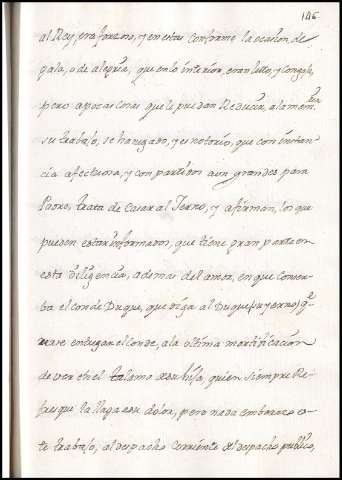 146
al Rey, era forzoso, y en estas conforme la ocasion de
gala, o de alegria, que en lo interior, eran luto, y congoja,
pero a pocas cosas que le puedan Reducir, a la memoria
su trabajo, se ha negado, y es notorio, que con instan
cia afectuosa, y con partidos aun grandes para
Padre, trata de Casar al Yerno, y afirman, los que
pueden estar informados, que tiene gran parte en
esta diligencia, ademas del amor, en que conser-
ba el conde Duque, que oiga al Duque (su yerno) q̃
en casa el conde, a la ultima mortificacion
de ver en el talamo de su hija, quien siempre Re-
fresque la llaga de su dolor, pero nada embarazo es-
te trabajo, al despacho corriente del despacho publico,